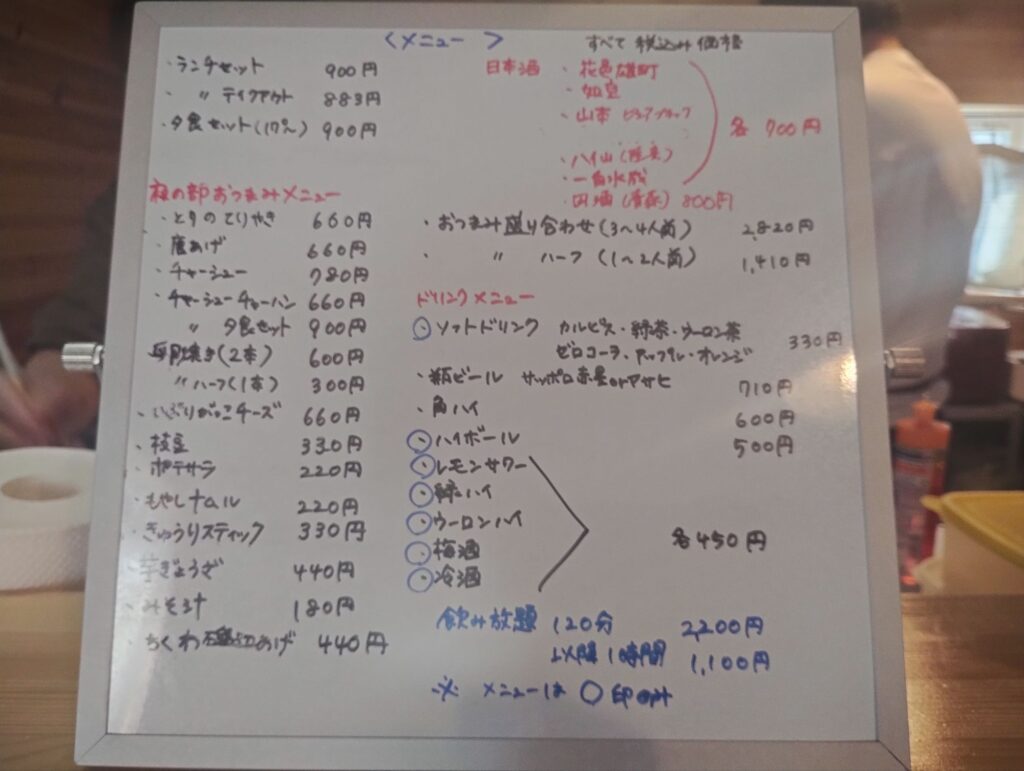 〈メニュー 〉
すべて 税込み価格
・ランチセット 900円
・ 〃 テイクアウト 883円
・夕食セット(17時〜) 900円
日本酒 ・花邑雄町
・如空
・山本 ピュアブラック
各 700円
・八仙(陸奥)
・一白水成
・田酒(青森) 800円
夜の部おつまみメニュー
・とりのてりやき 660円
・唐あげ 660円
・チャーシュー 780円
・チャーシューチャーハン 660円
〃 夕食セット 900円
(2本) 600円
〃ハーフ(1本) 300円
・いぶりがっこチーズ 660円
・枝豆 330円
・ポテサラ 220円
・もやしナムル 220円
・きゅうりスティック 330円
・芋ぎょうざ 440円
・みそ汁 180円
・ちくわ磯辺あげ 440円
・おつまみ盛り合わせ(3〜4人前) 2,820円
・ 〃 ハーフ (1〜2人前) 1,410円
ドリンクメニュー
○・ソフトドリンク カルピス・緑茶・ウーロン茶
ゼロコーラ・アップル・オレンジ 330円
・瓶ビール サッポロ赤星orアサヒ 710円
・角ハイ 600円
○・ハイボール 500円
○・レモンサワー
○・緑ハイ
○・ウーロンハイ
○・梅酒
○・冷酒
各450円
飲み放題 120分 2,200円
以降 1時間 1,100円
※ メニューは ○ 印のみ